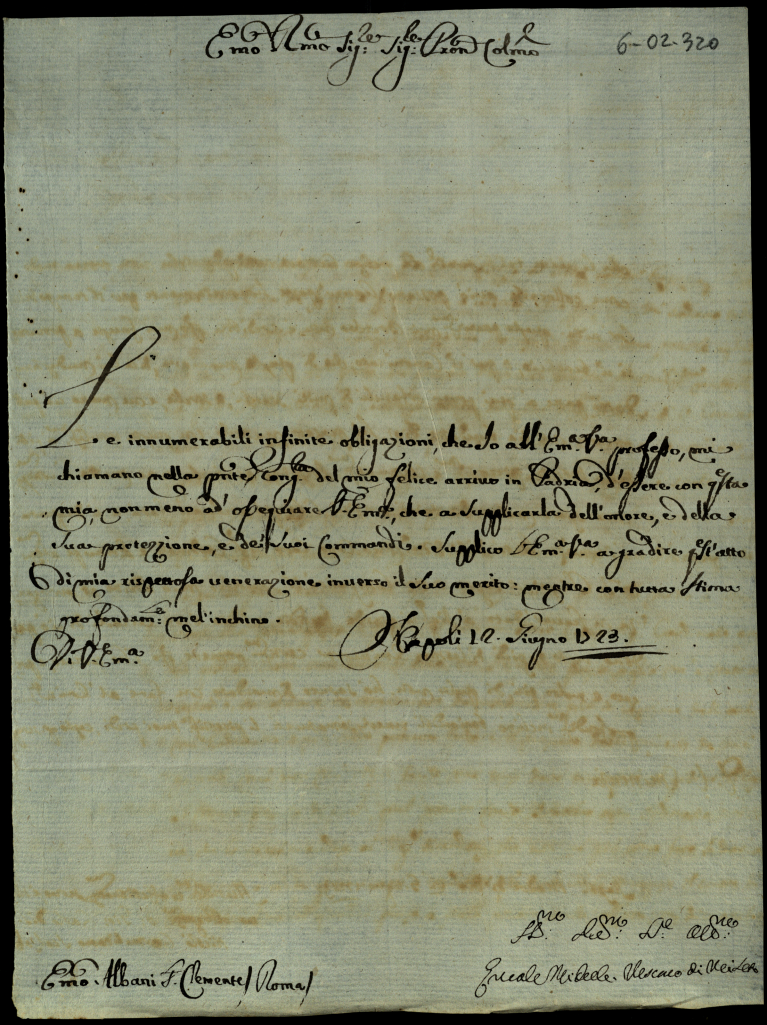 Emo Rmo Sig:re Sig:re Pron Colmo
6-02-320
Le innumerabili infinite obligazioni, che Io all' Em.a V.a professo, mi
chiamano nella pnte Cong.a del mio felice arrivo in Padria, d'essere con q.sta
mia, non meno ad' ossequiare V. Em.a, che a supplicarla dell'onore, e della
sua protezzione, e de' suoi Commandi. Supplico l'Em.a V.a a gradire q.st'atto
di mia rispettosa venerazione inverso il suo merito: mentre con tutta stima
profondam.te mel'inchino.
Di V. Em.a Napoli 12. Giugno 1723.
Emo. Albani S. Clemente / Roma /
Vescovo di